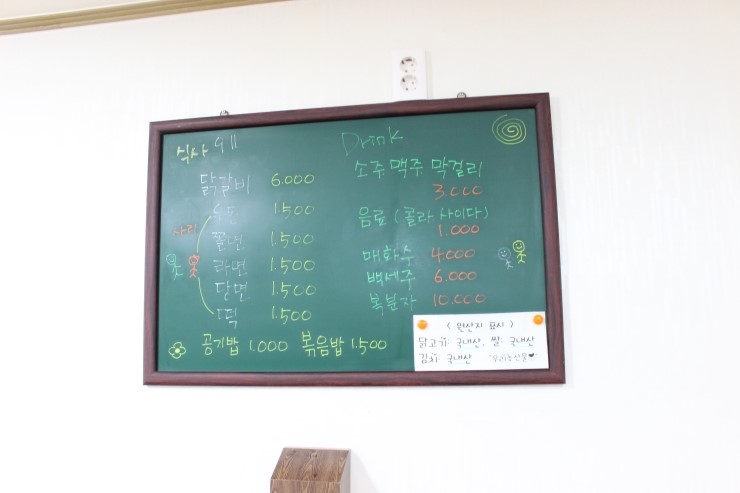 식사
닭갈비 6.000
사리
1.500
쫄면 1.500
라면 1.500
당면 1.500
떡 1.500
공기밥 1.000 볶음밥 1.500
Drink
소주 맥주 막걸리
3.000
음료 (콜라 사이다)
1.000
매화수 4.000
백세주 6.000
복분자 10.000
< 원산지 표시 >
닭고기: 국내산, 쌀: 국내산
김치: 국내산 "우리농산물♥"